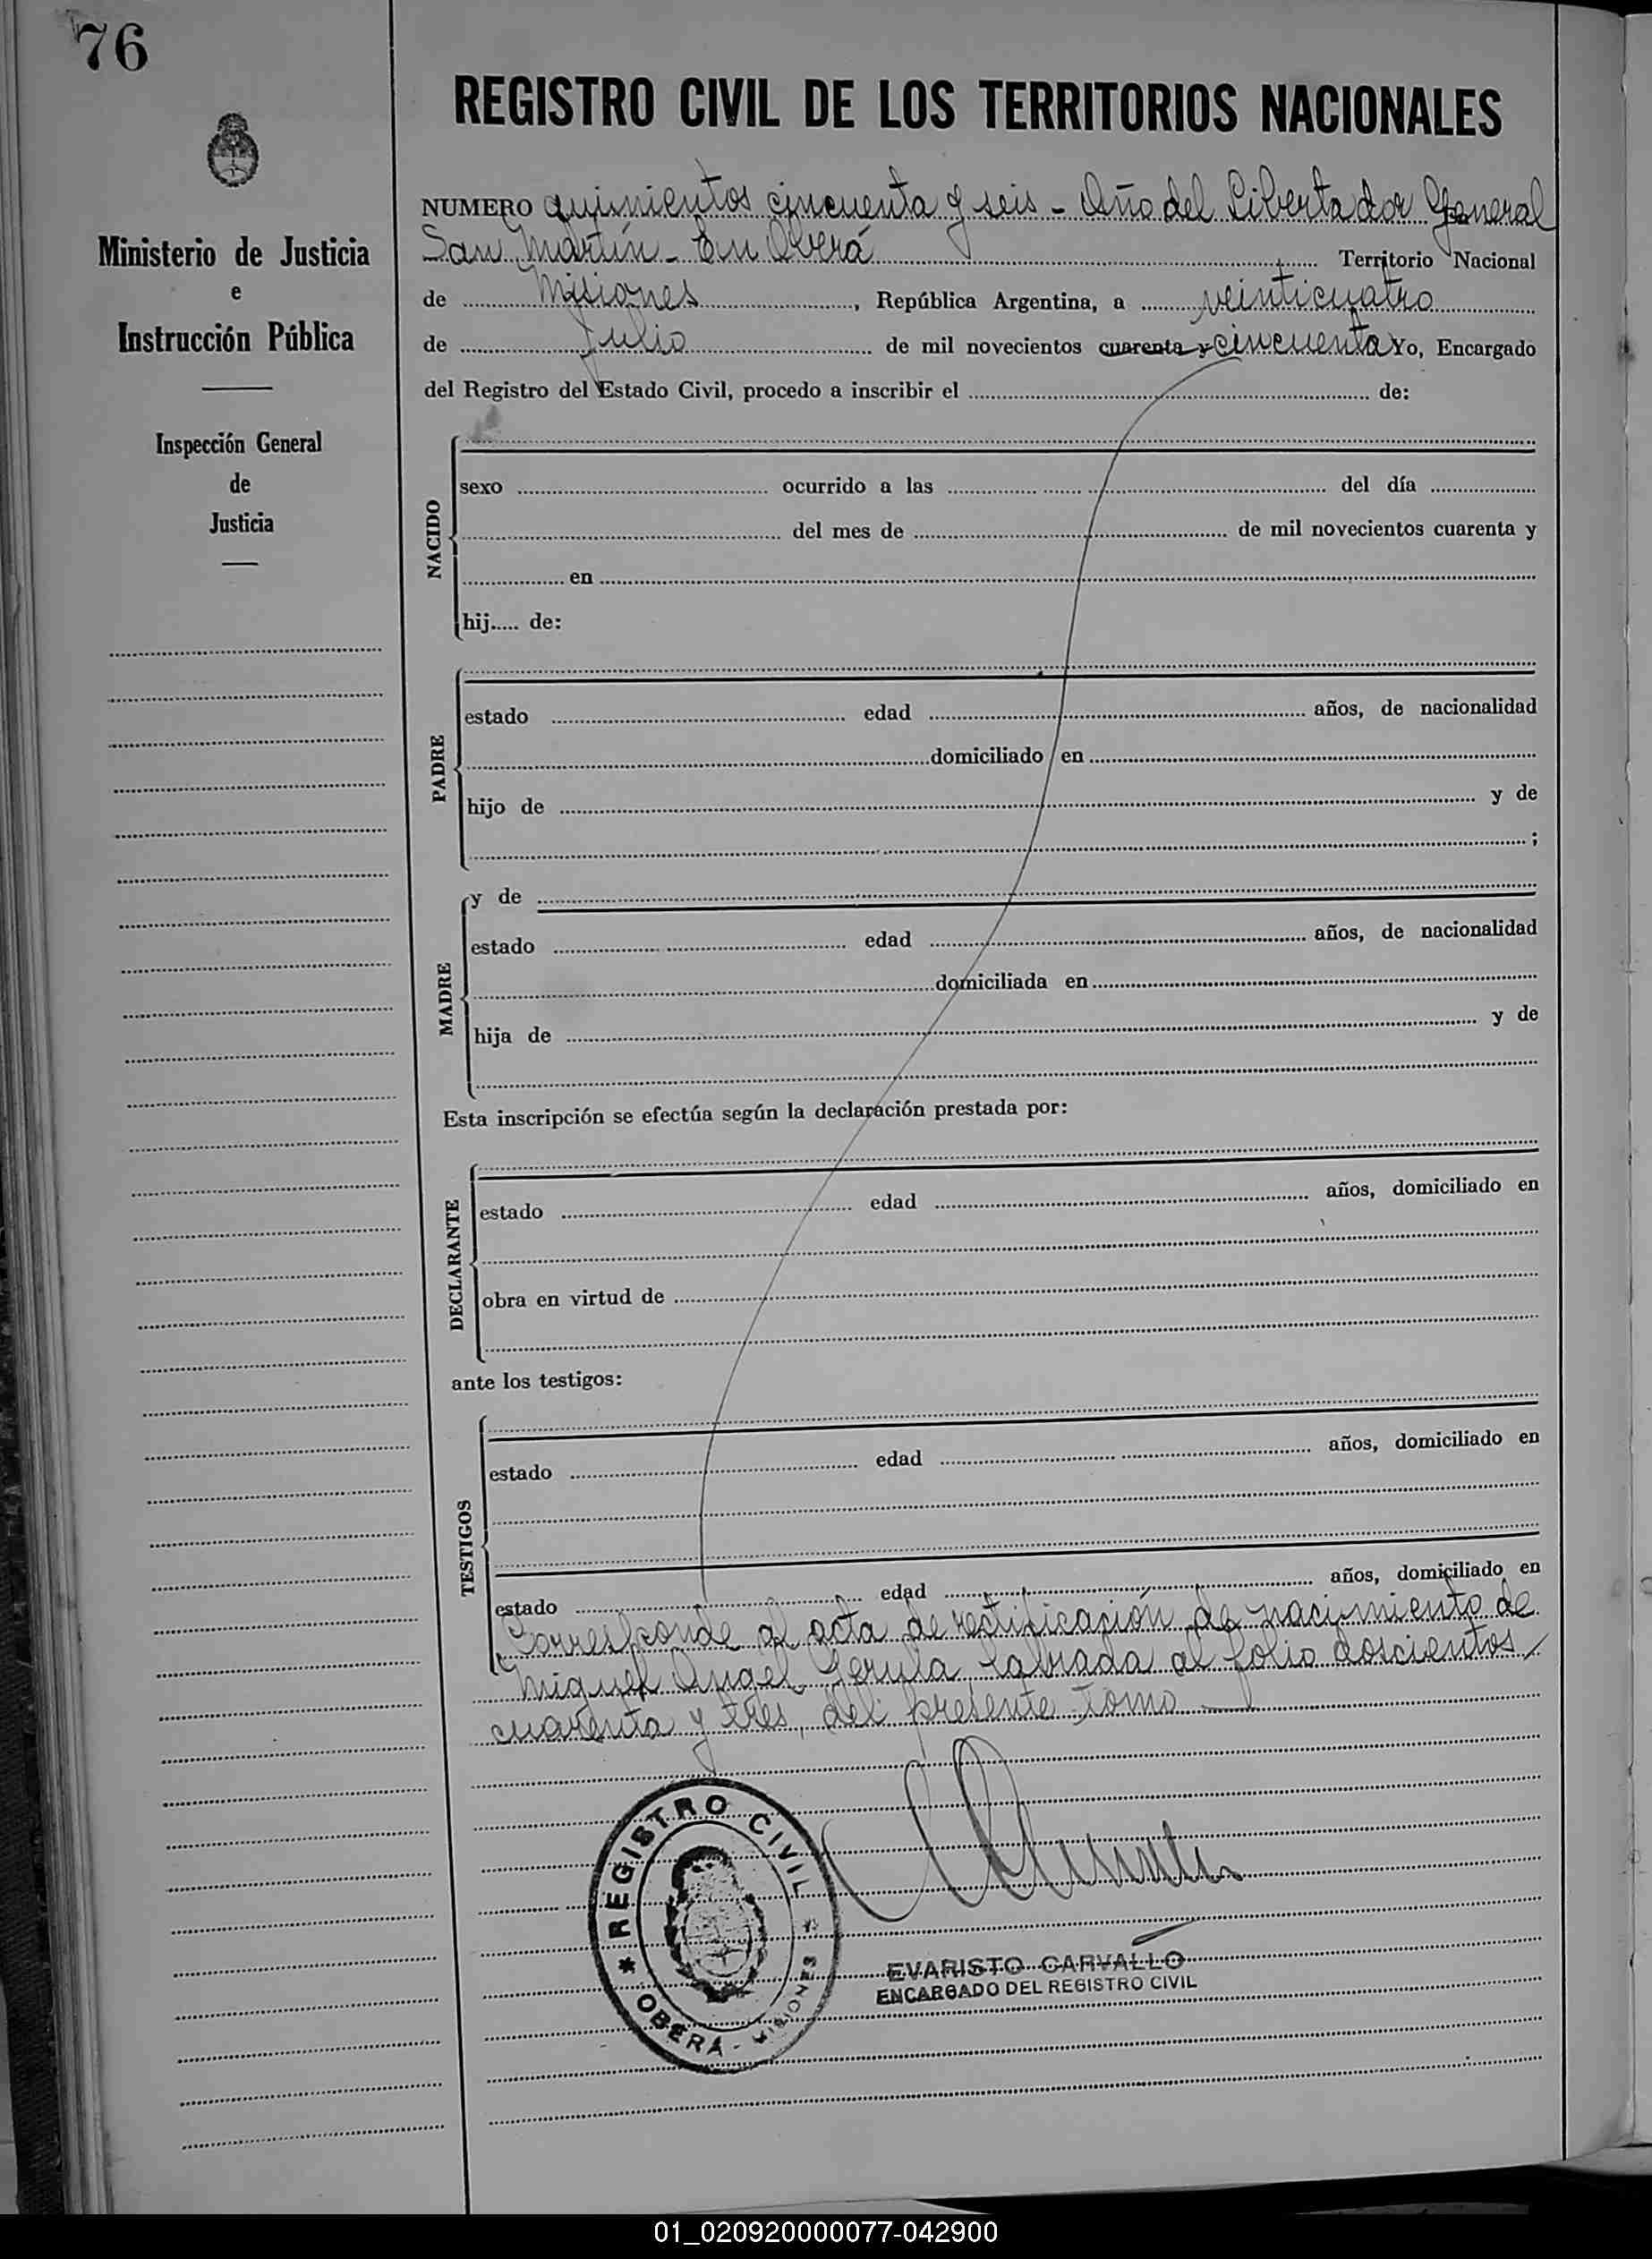 76
REGISTRO CIVIL DE LOS TERRITORIOS NACIONALES
Ministerio de Justicia
e
Instrucción Pública
Inspección General
de
Justicia
NUMERO quinientos cincuenta y seis - Año del Libertador General
San Martín - En Oberá Territorio Nacional
de Misiones, República Argentina, a veinticuatro
de Julio de mil novecientos cuarenta y cincuenta Yo, Encargado
del Registro del Estado Civil, procedo a inscribir el de:
NACIDO
sexo ocurrido a las del día
del mes de de mil novecientos cuarenta y
en
hij..... de:
PADRE
estado edad años, de nacionalidad
domiciliado en
hijo de y de
;
MADRE
y de
estado edad años, de nacionalidad
domiciliada en
hija de y de
Esta inscripción se efectúa según la declaración prestada por:
DECLARANTE
estado edad años, domiciliado en
obra en virtud de
ante los testigos:
TESTIGOS
estado edad años, domiciliado en
estado edad años, domiciliado en
Corresponde al acta de rectificación de nacimiento de
Miguel Angel Gerula labrada al folio doscientos
cuarenta y tres, del presente tomo
REGISTRO CIVIL
OBERÁ - MISIONES
EVARISTO CARVALLO
ENCARGADO DEL REGISTRO CIVIL
01_020920000077-042900